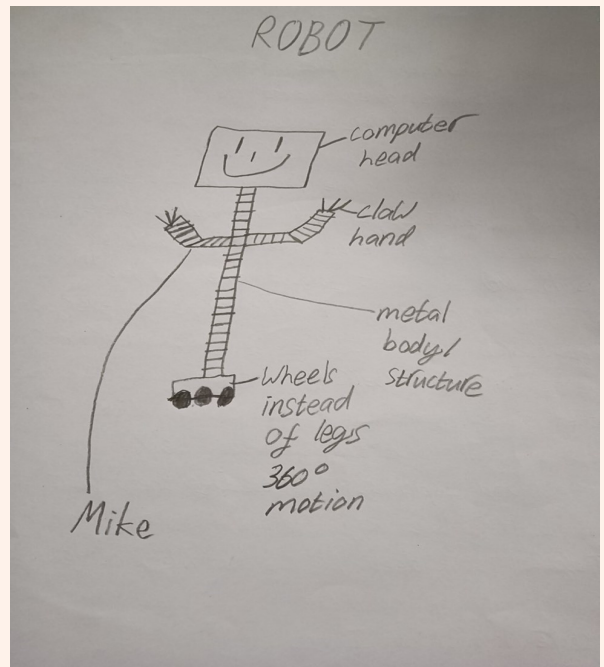 ROBOT
computer
head
claw
hand
metal
body/
structure
Wheels
instead
of legs
360°
motion
Mike